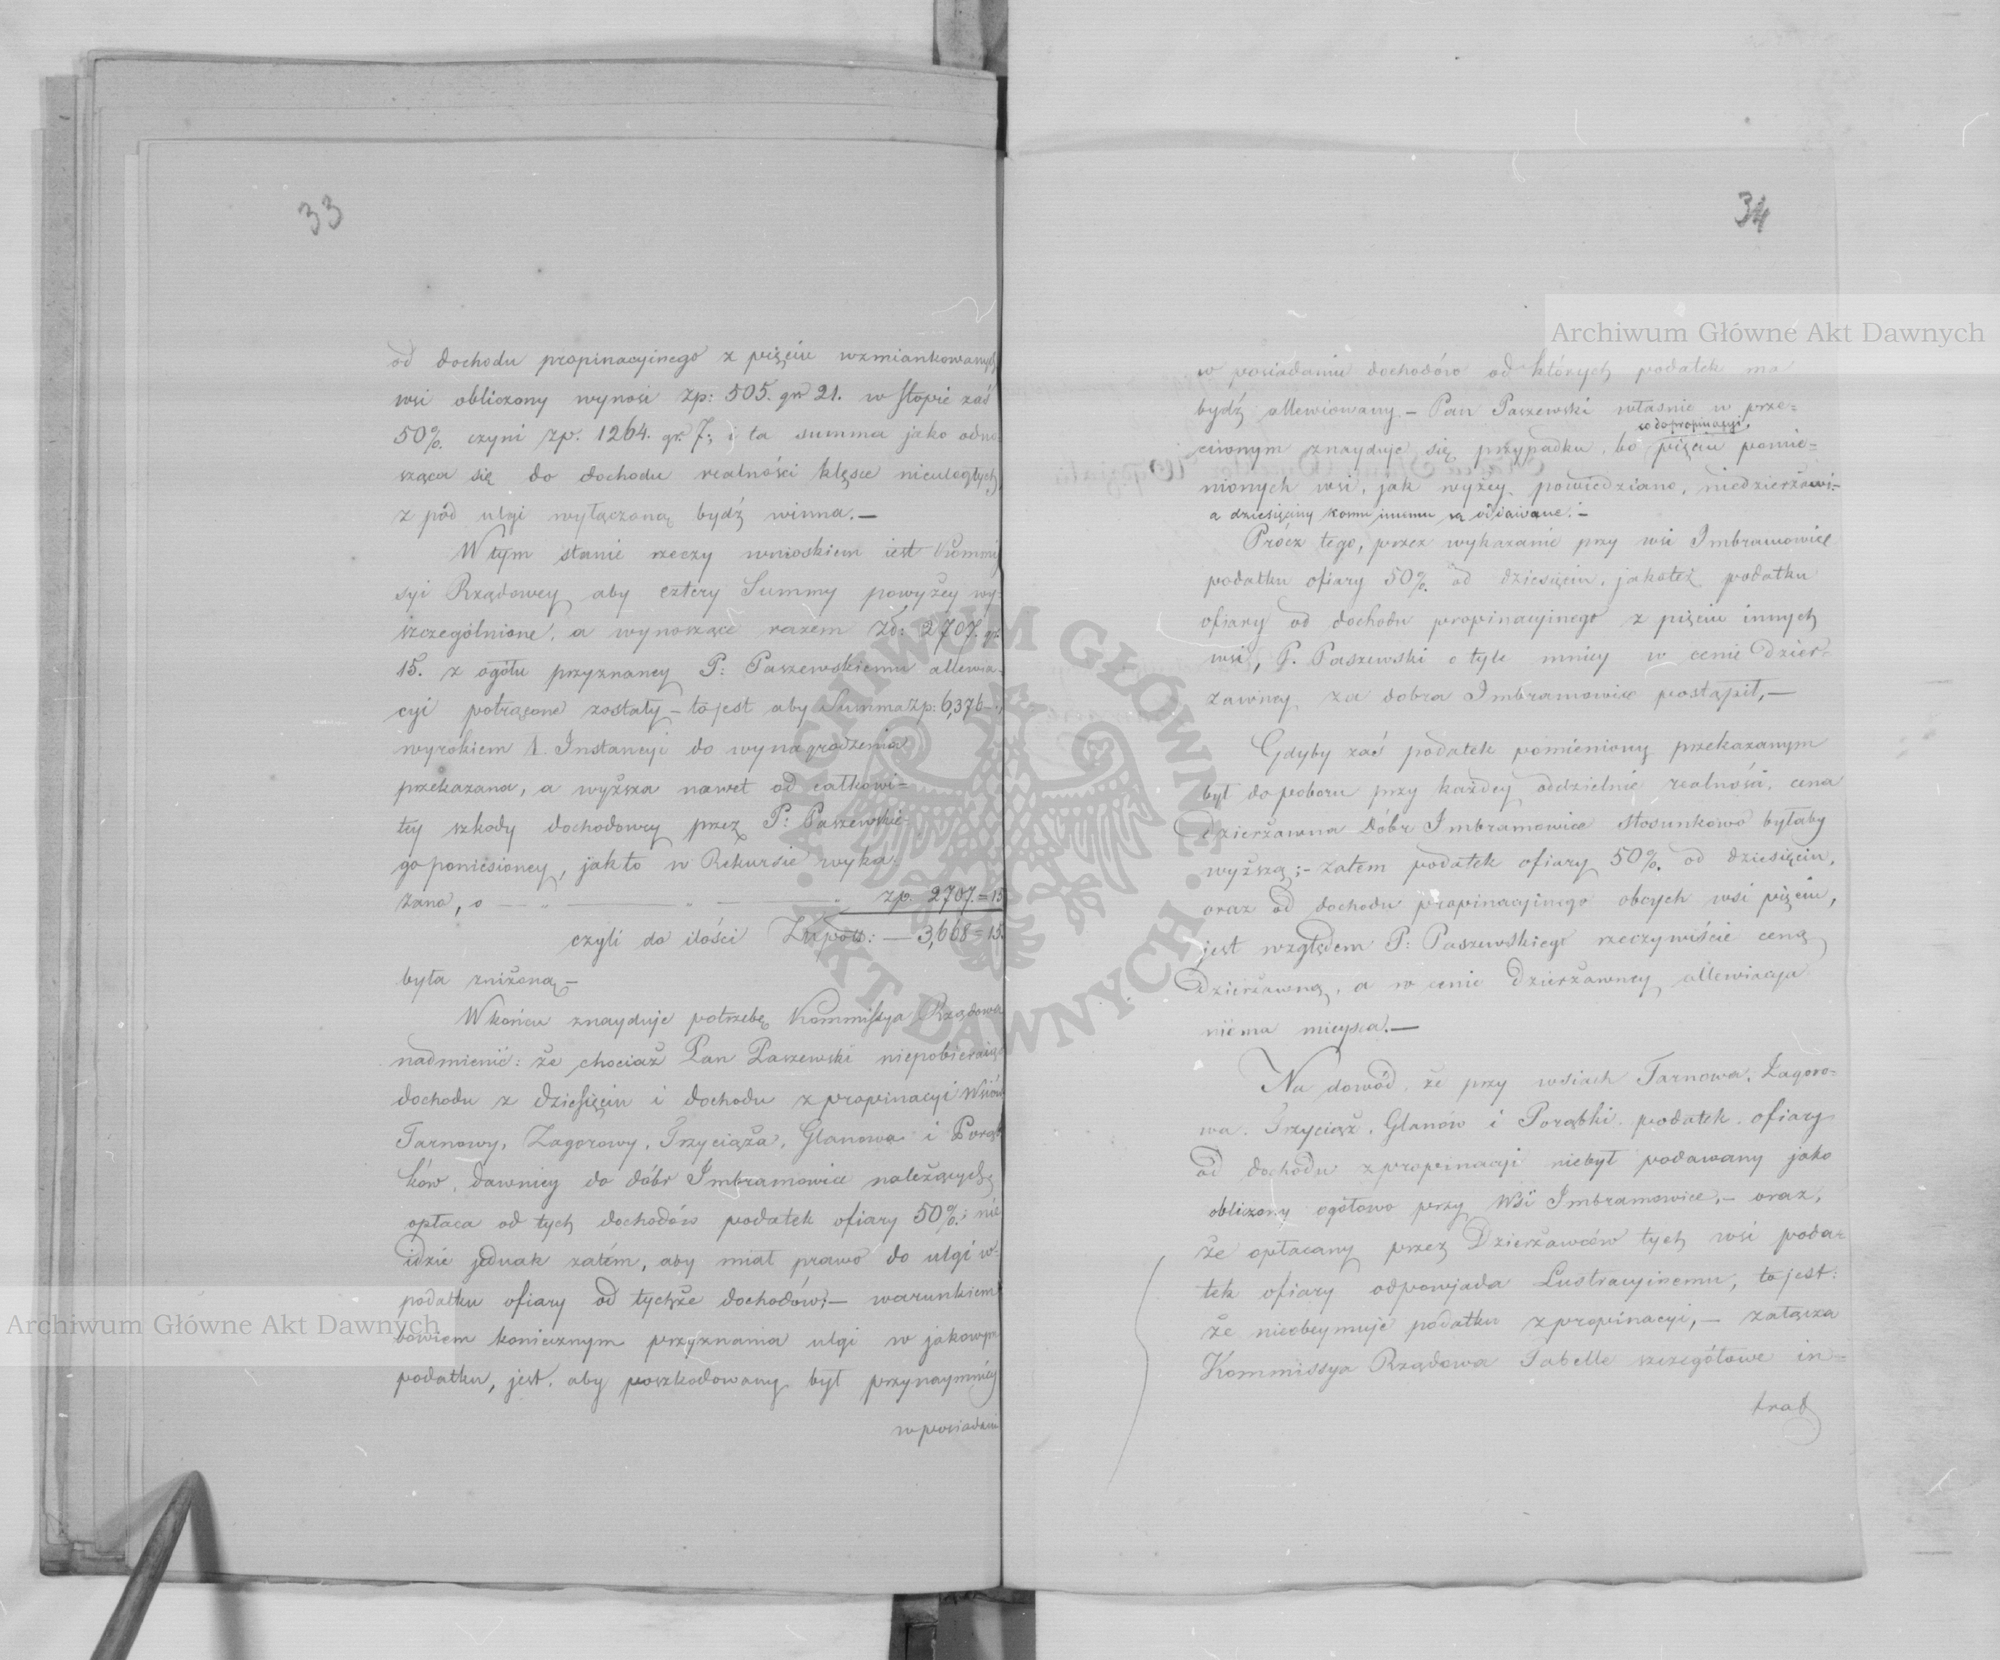 33
od dochodu propinacyinego z pięciu wzmiankowanych
wsi obliczony wynosi zp: 505. gr 21. w stopie zaś
50%. czyni zp. 1264. gr. 7; i ta summa jako odno
sząca się do dochodu realności klęsce nieuległych,
z pod ulgi wyłączoną bydź winna.—
W tym stanie rzeczy wnioskiem jest Kommis
syi Rządowey aby cztery Summy powyżey wy-
szczególnione, a wynoszące razem Zł: 2707. gr.
15. z ogółu przyznaney P: Paszewskiemu allewia-
cyi potrącone zostały – to jest aby Summa zp: 6,376 –
wyrokiem 1. Instancyi do wynagrodzenia
przekazana, a wyższa nawet od całkowi=
tey szkody dochodowey przez P: Paszewskie-
go poniesioney, jak to w Rekursie wyka-
zano, o — „ — „ — „ zp. 2707.=15
czyli do ilości — 3,668=15.
była zniżoną –
W końcu znayduje potrzebę Kommissya Rządowa
nadmienić: że chociaż Pan Paszewski niepobierając
dochodu z dziesięcin i dochodu z propinacyi Wsiów
Tarnowy, Zagorowy, Trzyciąża, Glanowa i Porąb
ków, dawniey do dóbr Imbramowice należących,
opłaca od tych dochodów podatek ofiary 50%.; nie
idzie jednak zatém, aby miał prawo do ulgi w
podatku ofiary od tychże dochodów;— warunkiem
bowiem koniecznym przyznania ulgi w jakowym
podatku, jest, aby poszkodowany był przynaymniéy
w posiadaniu
34
w posiadaniu dochodów od których podatek ma
bydź allewiowany.– Pan Paszewski własnie w prze=
co do propinacyi,
ciwnym znayduje się przypadku, bo pięciu pomie=
nionych wsi, jak wyżey powiedziano, niedzierżawi;–
a dziesięciny komu innemu są oddawane.–
Prócz tego, przez wykazanie przy wsi Imbramowice
podatku ofiary 50%. od dziesięcin, jakoteż podatku
ofiary od dochodu propinacyinego z pięciu innych
wsi, P. Paszewski o tyle mniey w cenie dzier-
żawney za dobra Imbramowice postąpił.—
Gdyby zaś podatek pomieniony przekazanym
był do poboru przy każdey oddzielnie realności, cena
dzierżawna Dóbr Imbramowice stosunkowo byłaby
wyższą;– zatem podatek ofiary 50%. od dziesięcin,
oraz od dochodu propinacyinego obcych wsi pięciu,
jest względem P: Paszewskiego rzeczywiście ceną
dzierżawną, a w cenie dzierżawney allewiacya
niema mieysca.—
Na dowód, że przy wsiach Tarnowa, Zagoro=
wa, Trzyciąż, Glanów i Porąbki, podatek ofiary
od dochodu z propinacyi niebył podawany jako
obliczony ogółowo przy Wsi Imbramowice,– oraz,
że opłacany przez Dzierżawców tych wsi poda=
tek ofiary odpowiada Lustracyinemu, to jest:
że nieobeymuje podatku z propinacyi,— załącza
Kommissya Rządowa Tabelle szczegółowe in=
trat
Archiwum Główne Akt Dawnych
Archiwum Główne Akt Dawnych
ARCHIWUM GŁÓWNE AKT DAWNYCH